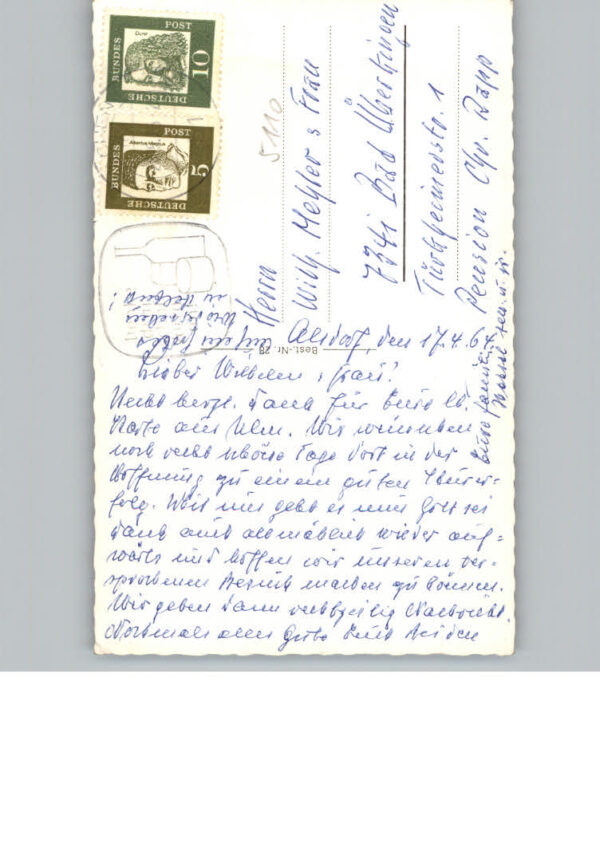 DEUTSCHE
BUNDES
POST
10
Dürer
DEUTSCHE
BUNDES
POST
5
Albertus Magnus
5110
Herrn
Wilh. Meßler u Frau
7341 Bad Überkingen
Türkheimerstr. 1
Pension Chr. Rapp
Best.-Nr. 28
Alsdorf, den 17.4.64.
Lieber Wilhelm u. Frau!
Recht herzl. Dank für Eure lb.
Karte aus Ulm. Wir wünschen
noch recht schöne Tage dort in der
Hoffnung zu einem guten Kurer-
folg. Mit mir geht es nun Gott sei
Dank auch allmählich wieder auf-
wärts und hoffen wir unseren ver-
sprochenen Besuch machen zu können.
Wir geben dann rechtzeitig Nachricht.
Nochmals alles Gute Euch beiden
Auf ein frohes
Wiedersehen
in
Eure Familie
sen. u. jr.